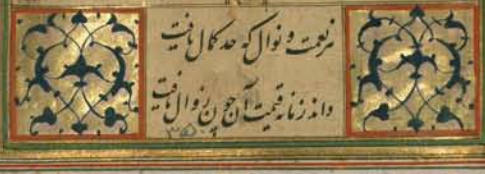 هر نعمت و نوال که حد کمال یافت
داند زمانه قیمت آن چون زوال یافت